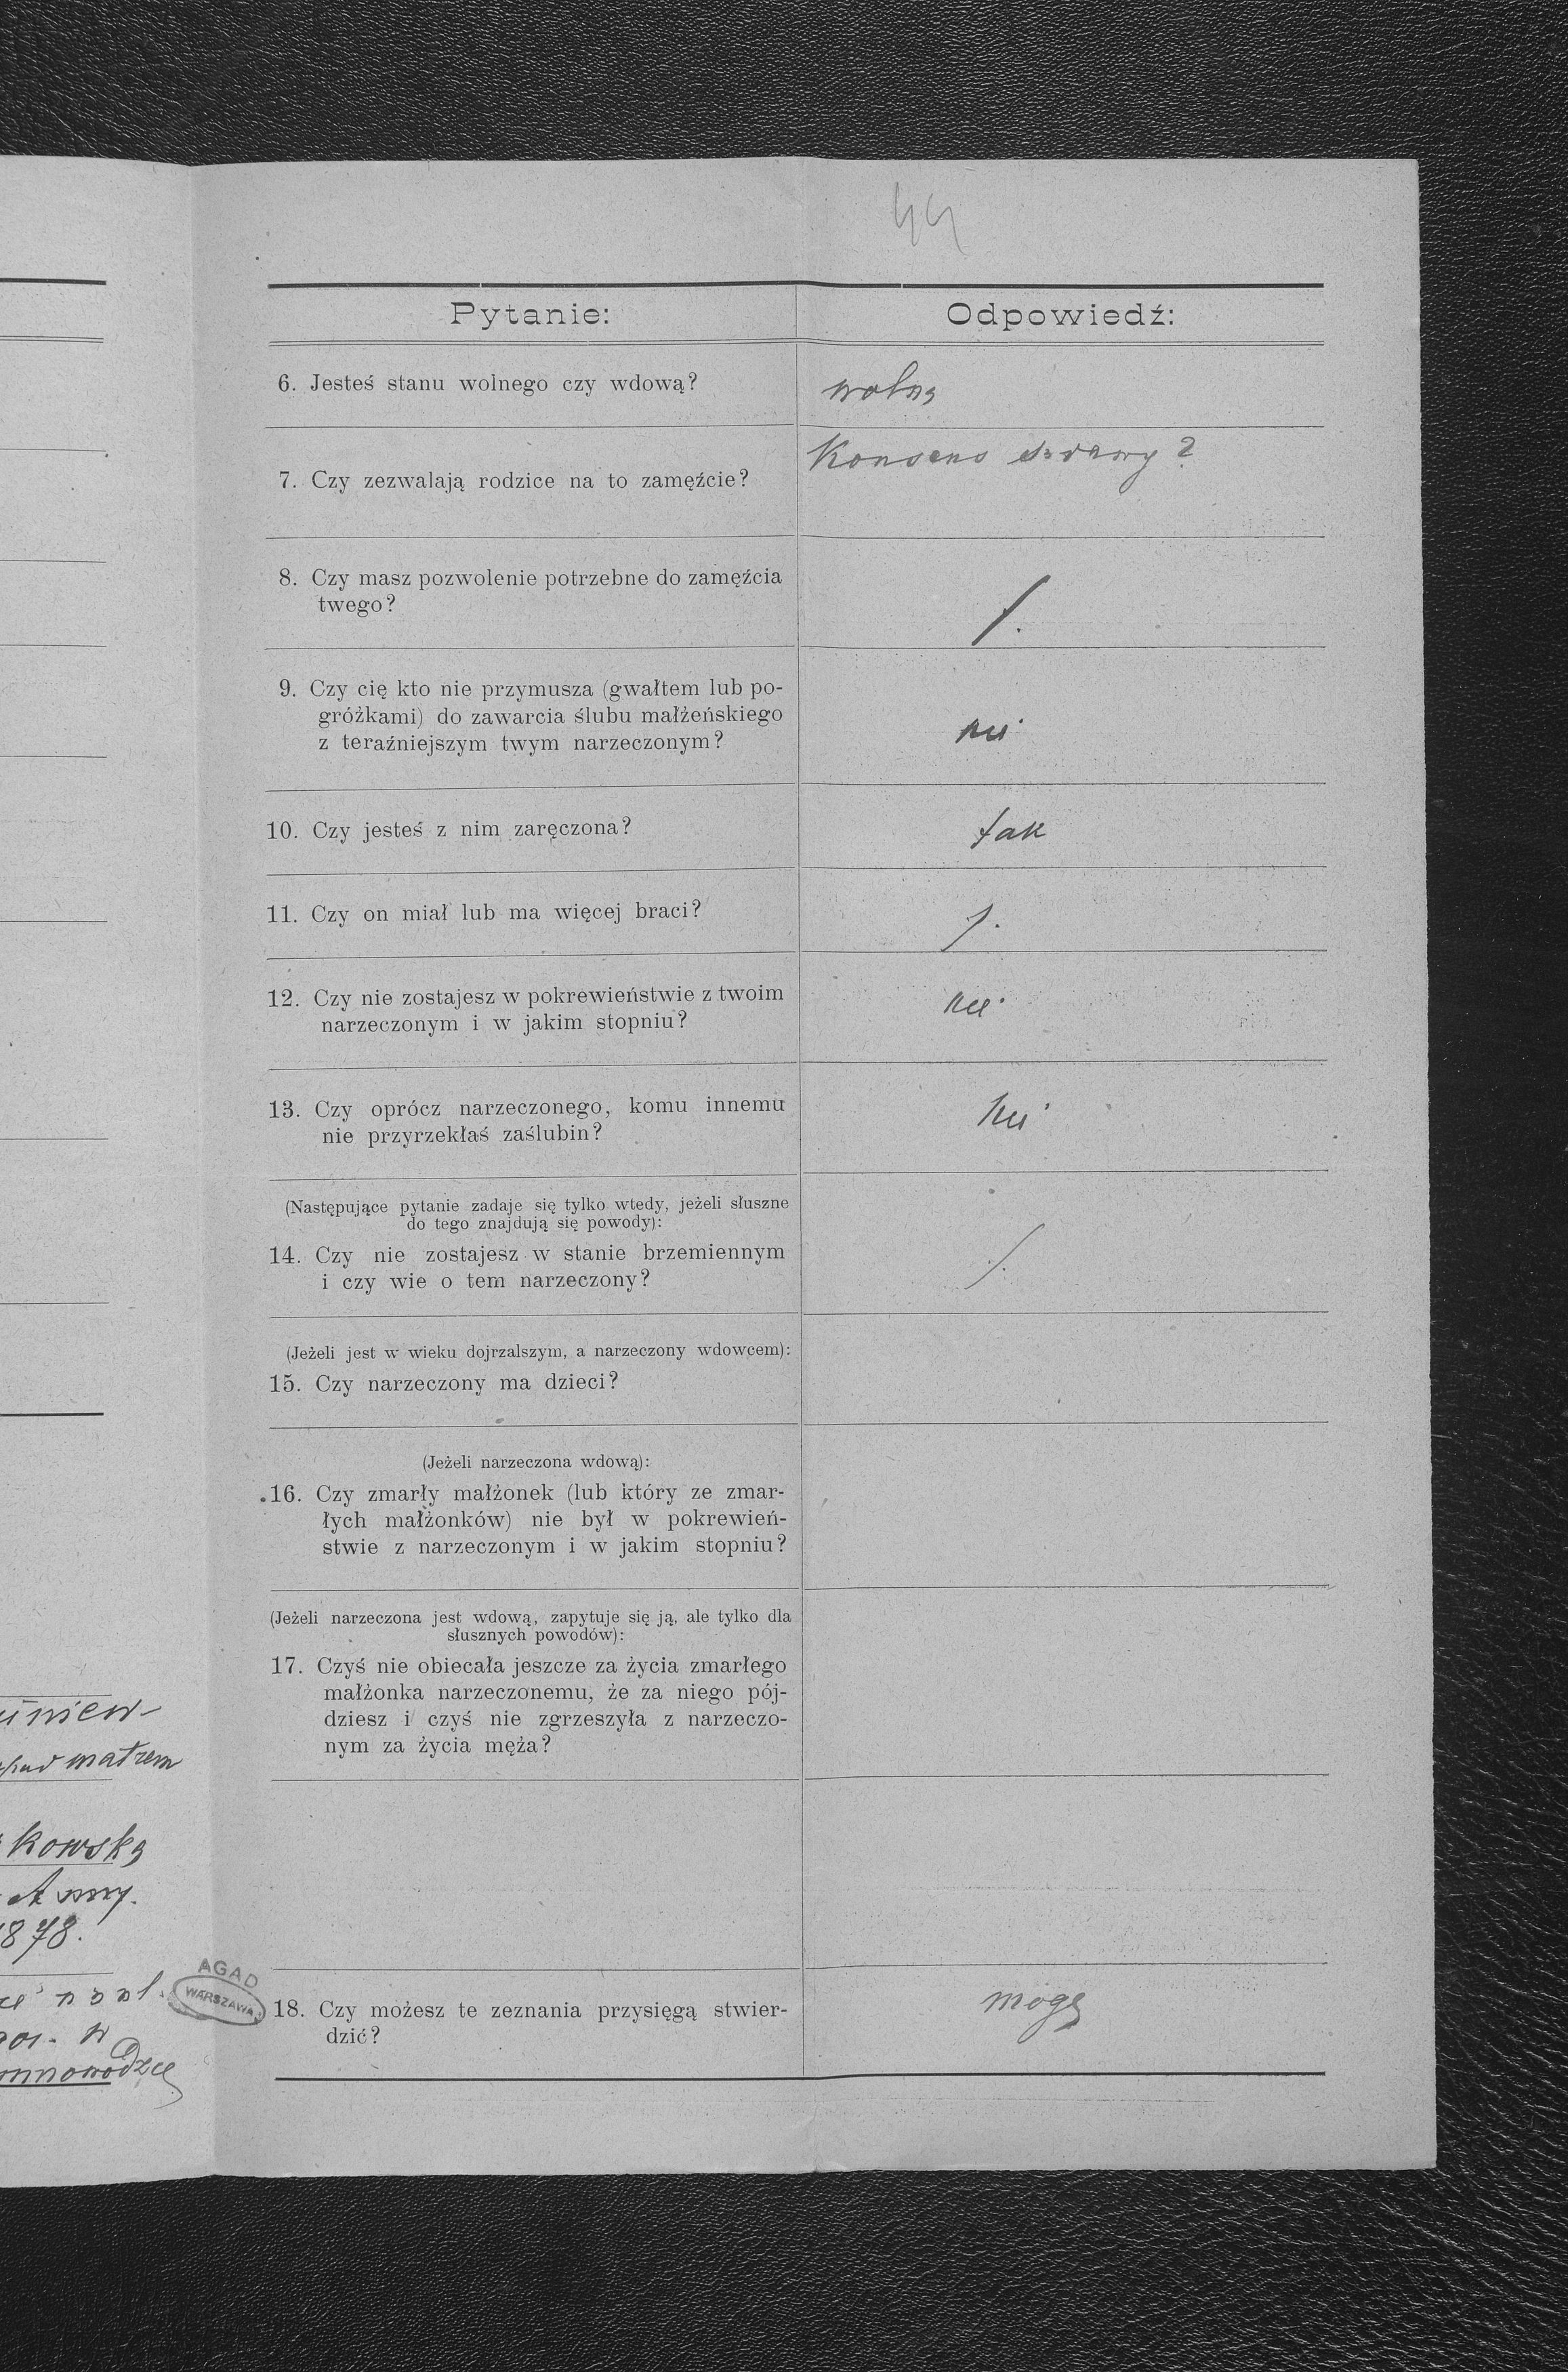 44
Pytanie: Odpowiedź:
6. Jesteś stanu wolnego czy wdową?
wolna
7. Czy zezwalają rodzice na to zamęźcie?
Konsens
8. Czy masz pozwolenie potrzebne do zamęźcia
twego?
/.
9. Czy cię kto nie przymusza (gwałtem lub po-
gróżkami) do zawarcia ślubu małżeńskiego
z teraźniejszym twym narzeczonym?
nie
10. Czy jesteś z nim zaręczona?
tak
11. Czy on miał lub ma więcej braci?
/.
12. Czy nie zostajesz w pokrewieństwie z twoim
narzeczonym i w jakim stopniu?
nie
13. Czy oprócz narzeczonego, komu innemu
nie przyrzekłaś zaślubin?
nie
(Następujące pytanie zadaje się tylko wtedy, jeżeli słuszne
do tego znajdują się powody):
14. Czy nie zostajesz w stanie brzemiennym
i czy wie o tem narzeczony?
./.
(Jeżeli jest w wieku dojrzalszym, a narzeczony wdowcem):
15. Czy narzeczony ma dzieci?
(Jeżeli narzeczona wdową):
16. Czy zmarły małżonek (lub który ze zmar-
łych małżonków) nie był w pokrewień-
stwie z narzeczonym i w jakim stopniu?
(Jeżeli narzeczona jest wdową, zapytuje się ją, ale tylko dla
słusznych powodów):
17. Czyś nie obiecała jeszcze za życia zmarłego
małżonka narzeczonemu, że za niego pój-
dziesz i czyś nie zgrzeszyła z narzeczo-
nym za życia męża?
18. Czy możesz te zeznania przysięgą stwier-
dzić?
mogę
matrem
kowska
Anny.
1878.
AGAD
WARSZAWA